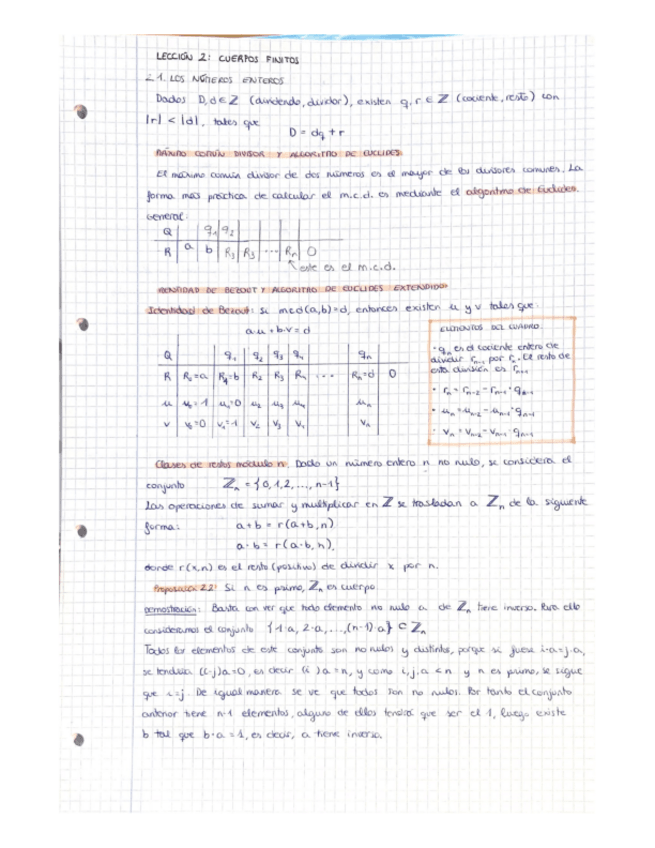 LECCIÓN 2: CUERPOS FINITOS
2.1. LOS NÚMEROS ENTEROS
Dados D, d ∈ Z (dividendo, divisor), existen q, r ∈ Z (cociente, resto) con
|r| < |d|, tales que
D = dq + r
MÁXIMO COMÚN DIVISOR Y ALGORITMO DE EUCLIDES
El máximo común divisor de dos números es el mayor de los divisores comunes. La
forma más práctica de calcular el m.c.d. es mediante el algoritmo de Euclides.
General:
Q q₁ q₂
R a b R₃ R₃ ... Rₙ 0
este es el m.c.d.
IDENTIDAD DE BEZOUT Y ALGORITMO DE EUCLIDES EXTENDIDO
Identidad de Bezout: si mcd(a,b)=d, entonces existen u y v tales que:
a·u + b·v = d
Q q₁ q₂ q₃ q₄ qₙ
R R₀=a R₁=b R₂ R₃ R₄ ... Rₙ=d 0
u u₀=1 u₁=0 u₂ u₃ u₄ uₙ
v v₀=0 v₁=1 v₂ v₃ v₄ vₙ
ELEMENTOS DEL CUADRO
· qₙ es el cociente entero de
dividir rₙ₋₁ por rₙ. El resto de
esta división es rₙ₊₁
· rₙ = rₙ₋₂ - rₙ₋₁·qₙ₋₁
· uₙ = uₙ₋₂ - uₙ₋₁·qₙ₋₁
· vₙ = vₙ₋₂ - vₙ₋₁·qₙ₋₁
Clases de restos módulo n. Dado un número entero n no nulo, se considera el
conjunto Zₙ = {0,1,2,...,n-1}
Las operaciones de sumar y multiplicar en Z se trasladan a Zₙ de la siguiente
forma: a+b = r(a+b,n)
a·b = r(a·b,n),
donde r(x,n) es el resto (positivo) de dividir x por n.
Proposición 2.2: Si n es primo, Zₙ es cuerpo
Demostración: Basta con ver que todo elemento no nulo a de Zₙ tiene inverso. Para ello
consideramos el conjunto {1·a, 2·a, ..., (n-1)·a} ⊂ Zₙ
Todos los elementos de este conjunto son no nulos y distintos, porque si fuese i·a=j·a,
se tendría (i-j)a=0, es decir (i )a=n, y como i,j,a<n y n es primo, se sigue
que i=j. De igual manera se ve que todos son no nulos. Por tanto el conjunto
anterior tiene n-1 elementos, alguno de ellos tendrá que ser el 1, luego existe
b tal que b·a=1, es decir, a tiene inverso.